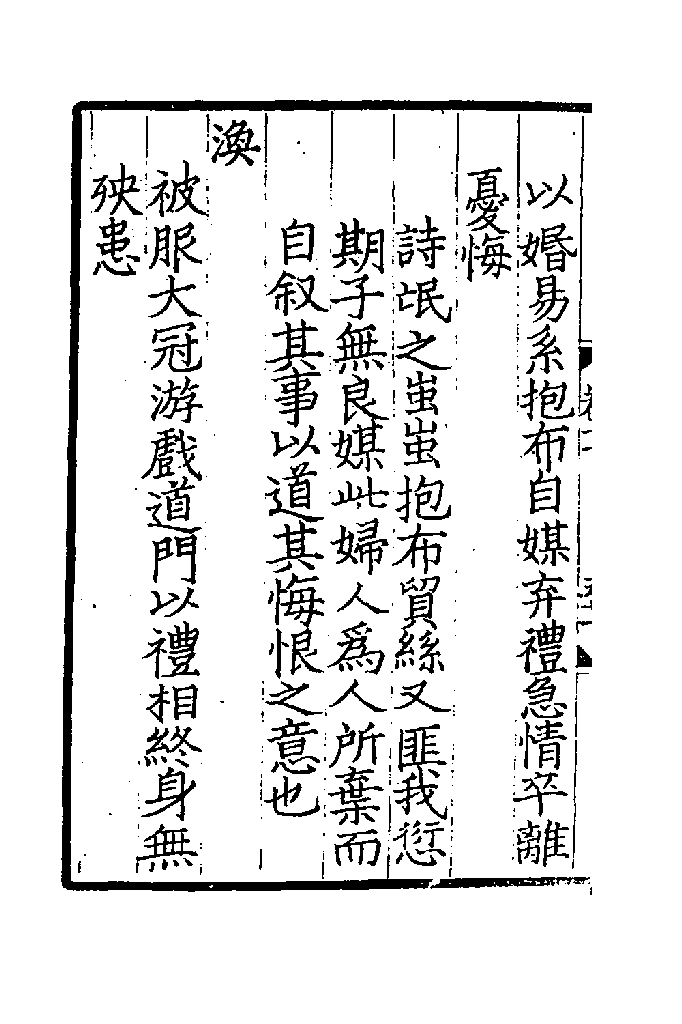 以婚易系抱布自媒弃禮急情卒離
憂悔
詩氓之蚩蚩抱布貿絲又匪我愆
期子無良媒此婦人爲人所棄而
自叙其事以道其悔恨之意也
渙
被服大冠游戲道門以禮相終身無
殃患